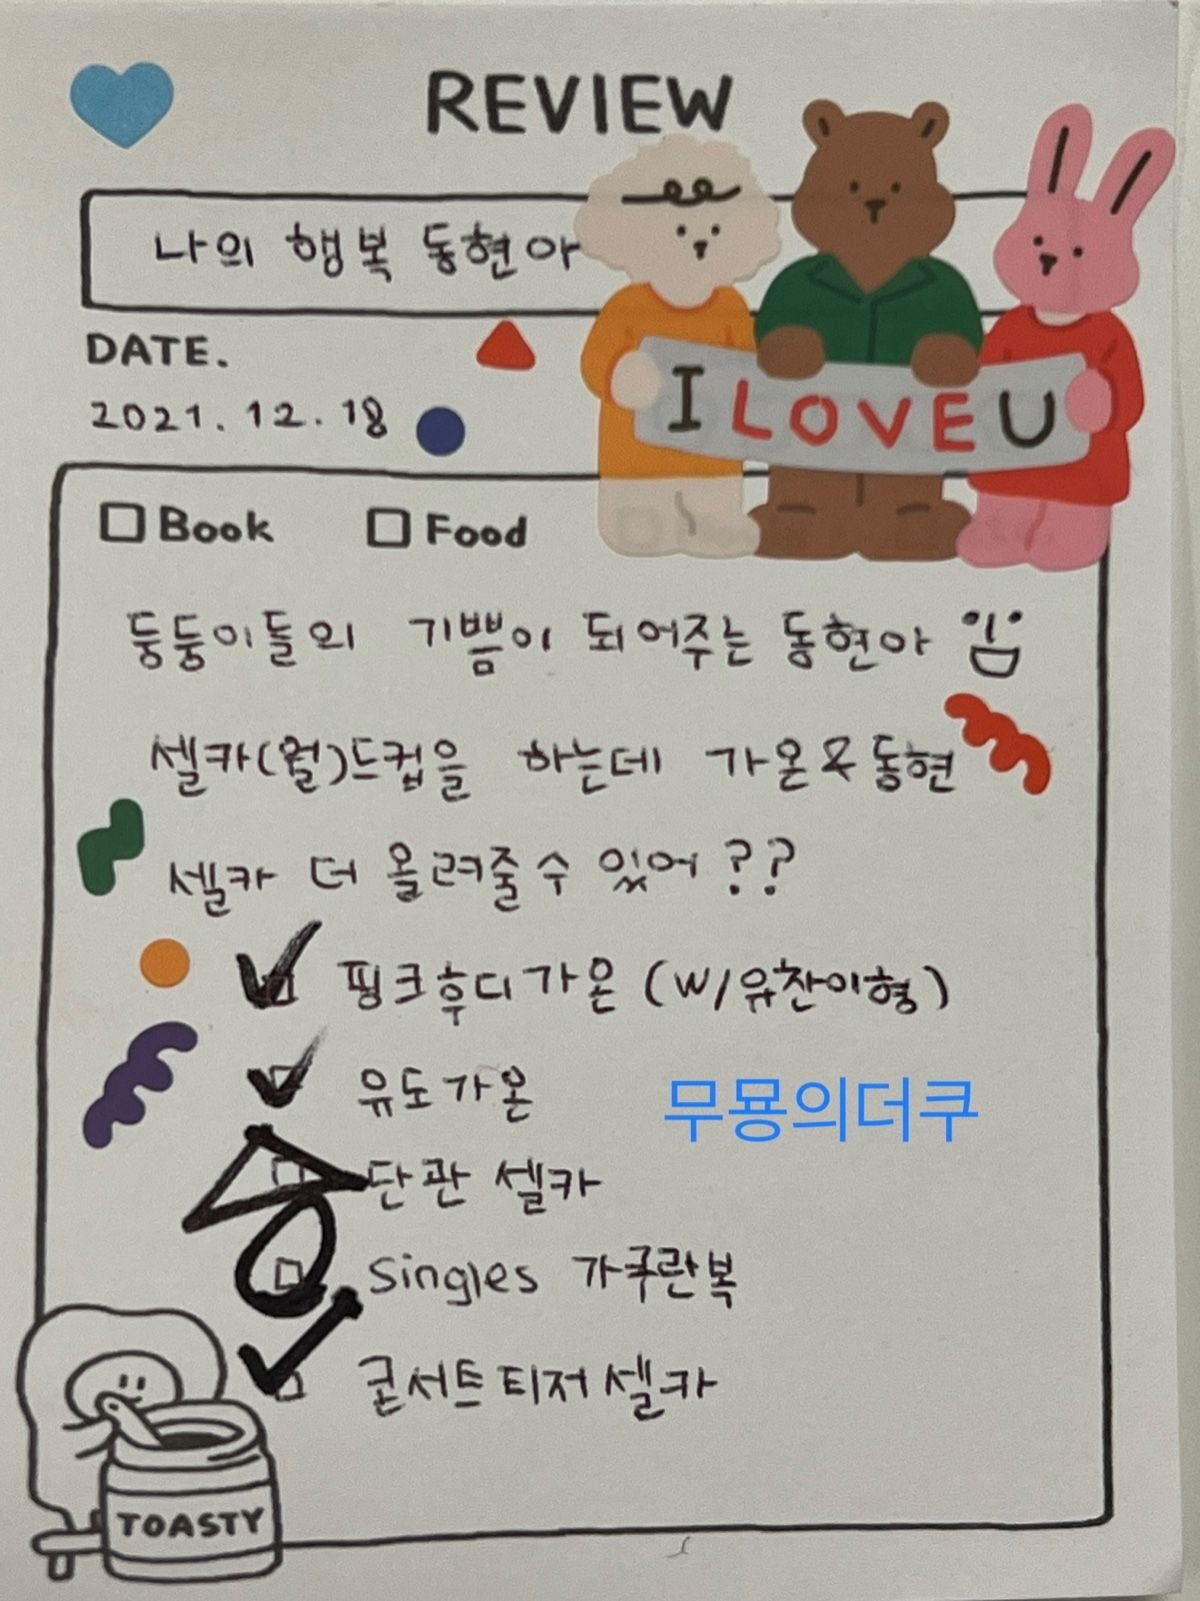 REVIEW
나의 행복 동현아
DATE.
2021.12.18
I LOVE U
Book Food
둥둥이들의 기쁨이 되어주는 동현아
셀카(월)드컵을 하는데 가온 동현
셀카 더 올려줄수 있어??
핑크후디가온 (W/유찬이형)
유도가온
단관 셀카
Singles 가쿠란복
콘서트티저셀카
무묭의더쿠
TOASTY